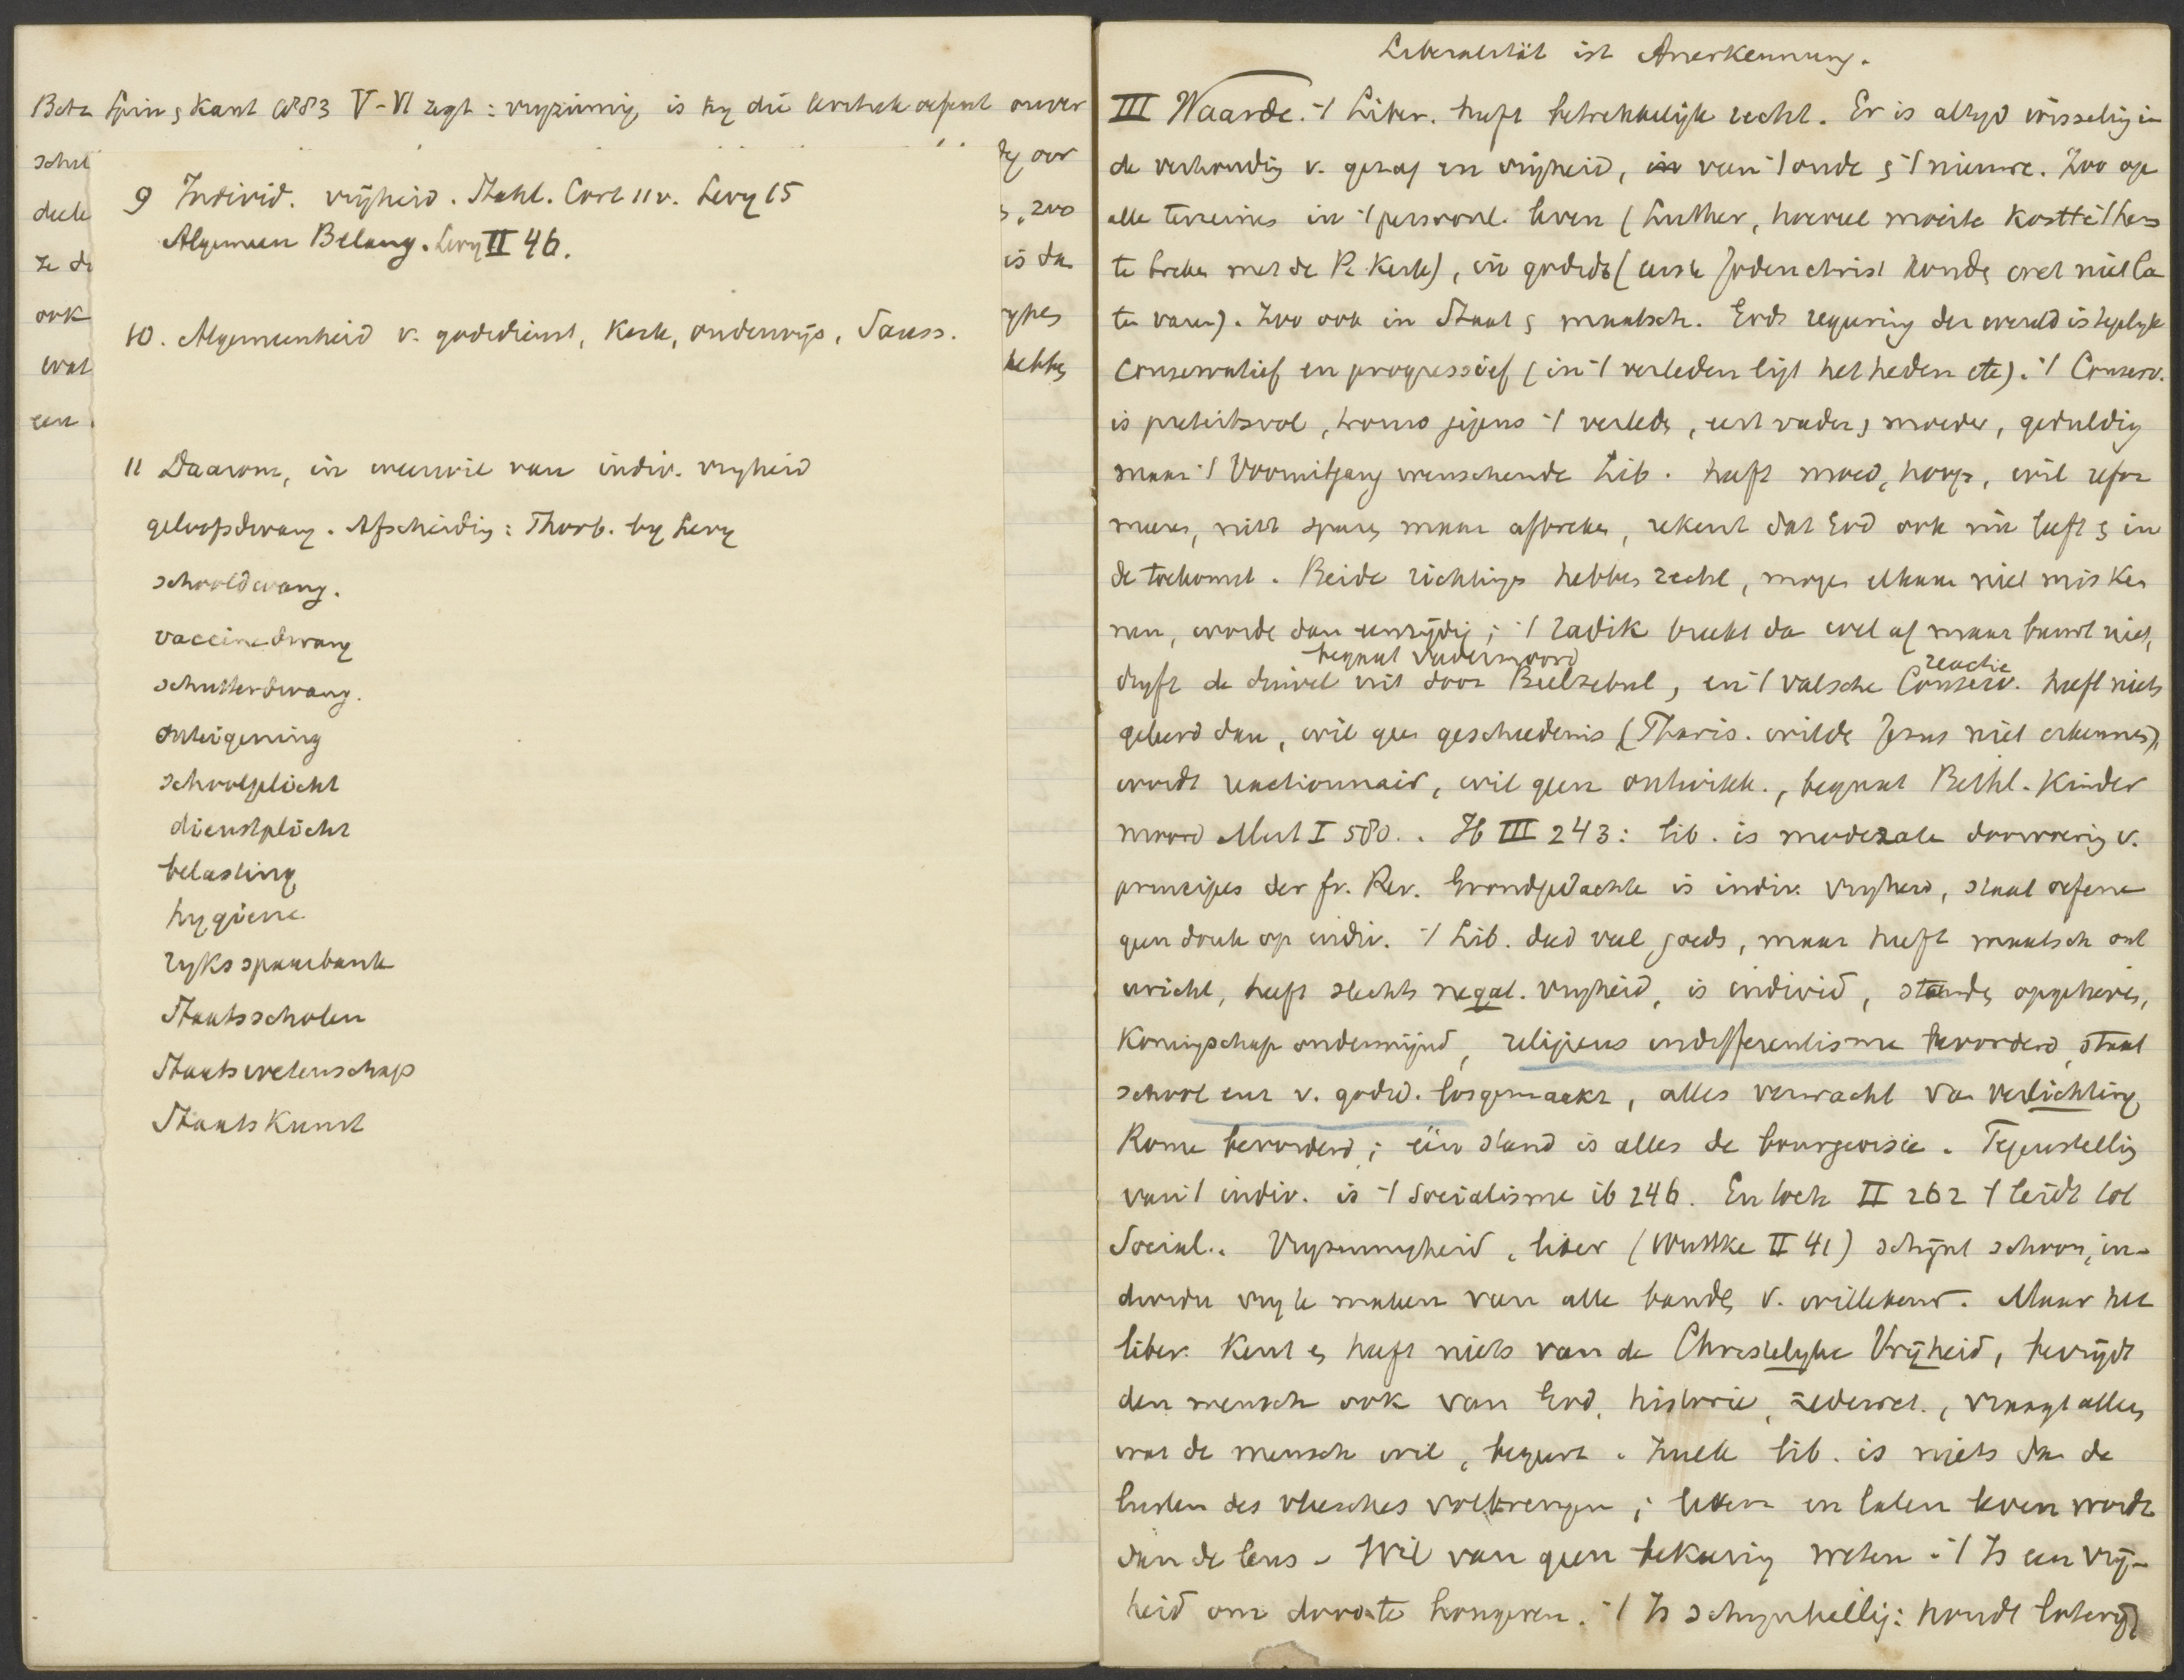 Betz Spin en Kant 1883 V-VI zegt: vrijzinnig is hy die kritiek oefent onver
schil
deele
ze d
ook
wat
een
dig over
s, zoo
is da
ypes
hebben
9 Individ. vrijheid. Stahl. Cort 11 v. Levy 65
Algemeen Belang. Levy II 46.
10. Algemeenheid v. godsdienst, Kerk, onderwijs, Sauss.
11 Daarom, in weerwil van indiv. vryheid
geloofsdwang. Afscheiding: Thorb. by Levy
schooldwang.
vaccinedwang
schutterdwang.
onteigening
schoolplicht
dienstplicht
belasting
hygiene
ryksspaarbank
Staatsscholen
Staatswetenschap
StaatsKunst
Liberalität ist Anerkennung.
III Waarde. 't Liber. heeft betrekkelijk recht. Er is altyd wisseling in
de verhouding v. gezag en vrijheid, van 't oude en 't nieuwe. Zoo op
alle terreinen in 't persoonl. leven (Luther, hoeveel moeite kostte 't hem
te breken met de R. Kerk), in godsd. (eerste Jodenchrist konden wet niet la
ten varen). Zoo ook in Staat en maatsch. Gods regeering der wereld is tegelyk
conservatief en progressief (in 't verleden ligt het heden etc). 't Conserv.
is pieteitsvol, vroom jegens 't verleden, eert vader en moeder, geduldig
maar 't Vooruitgang wenschende Lib. heeft moed, hoop, wil refor
meeren, niet sparen maar afbreken, rekent dat God ook nu leeft en in
de toekomst. Beide richtingen hebben recht, mogen elkaar niet misken
nen, worden dan eenzijdig; 't radik breekt dan wel af maar bouwt niet,
begaat vadermoord
reactie
dryft de duivel uit door Beelzebul, en 't valsche Conserv. heeft niets
geleerd dan, wil geen geschiedenis (Phariz. wilden Jezus niet erkennen),
wordt reactionnair, wil geen ontwikk., begaat Bethl. Kinder
moord Mart I 580. Ib III 243: lib. is moderate doorvoering v.
principes der fr. Rev. Grondgedachte is indiv. vryheid, staat oefene
geen druk op indiv. 't Lib. deed veel goeds, maar heeft maatsch ont
wricht, heeft slechts negat. vryheid, is individ, standen opgeheven,
Koningschap ondermijnd, religieus indifferentisme bevorderd, staat
school enz v. godsd. losgemaakt, alles verwacht van verlichting,
Rome bevorderd; één stand is alles de bourgeoisie. Tegenstelling
van 't indiv. is 't Socialisme ib 246. En toch II 262 't leidt tot
Social.. Vryzinnigheid, liber (Wuttke II 41) schijnt schoon, in-
dividu vry te maken van alle banden v. willekeur. Maar het
liber. Kent en heeft niets van de Christelyke Vrijheid, bevrijdt
den mensch ook van God, historie, zedewet., vraagt alleen
wat de mensch wil, begeert. Zulk lib. is niets dan de
lusten des vleesches volbrengen; leven en laten leven wordt
dan de leus. Wil van geen bekeering weten. 't Is een vrij-
heid om dood te hongeren. 't Is schynheilig: houdt loterij